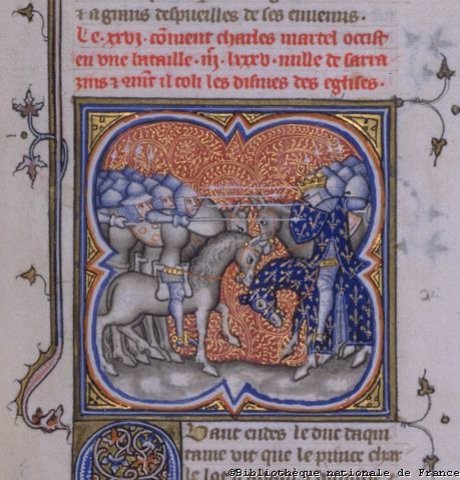 & a grans despueilles de ses enuemis.
Le .xxvi. cõment charles martel occist
en une bataille .iii. lxxxv. mille de sarra
zins & cõment il toli les dismes des eglises.
Quant eudes le duc daqui
taine vit que le prince char
©Bibliothèque nationale de France